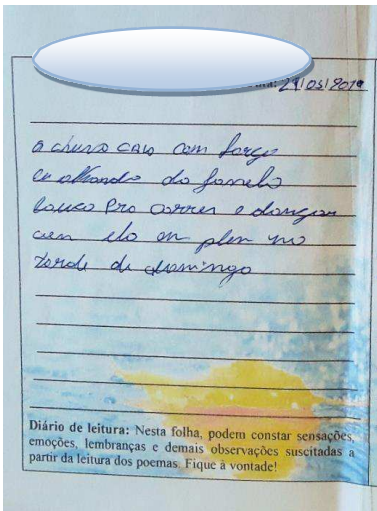 29/05/2019
a chuva caia com força
eu olhando da janela
louco pro correr e dançar
com ela em plen no
tarde de domingo
Diário de leitura: Nesta folha, podem constar sensações,
emoções, lembranças e demais observações suscitadas a
partir da leitura dos poemas. Fique à vontade!